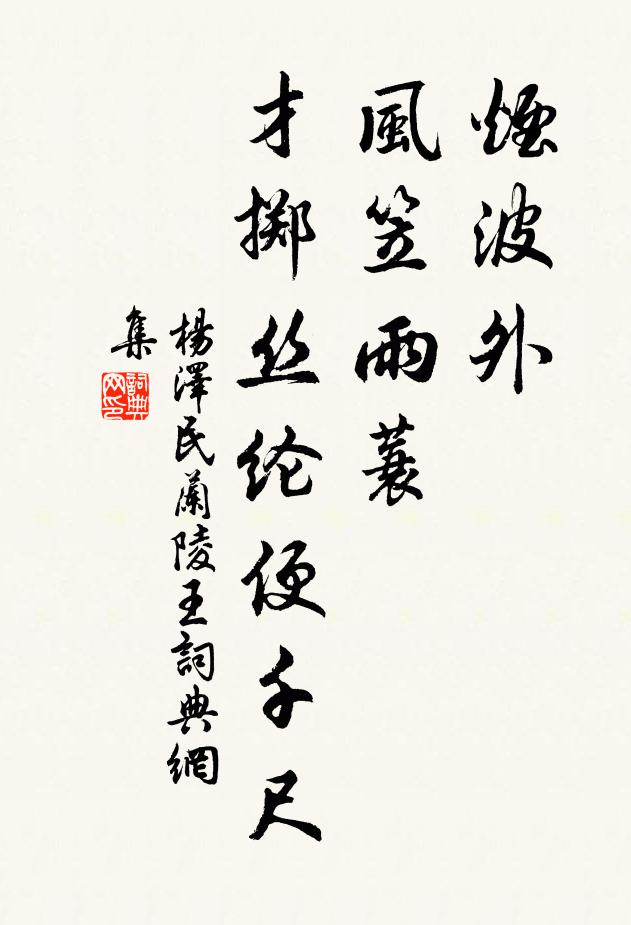 煙波外
風笠雨蓑
才掷丝纶便千尺
楊澤民蘭陵王詞典網
集
詞典
网印